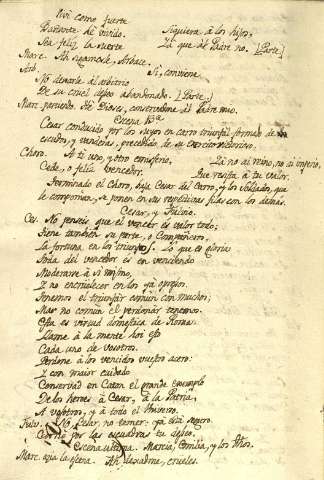 Vivi como fuerte
Bastante he vivido. Siquiera á los hijos,
Sea feliz la suerte La que al Padre no. [Parte]
Marc. Ah sigamosle, Arbace.
Arb. Si, conviene
No dexarle al arbitrio
De su cruel deseo abandonado. [Parte.]
Marc. partiendo. Oh Dioses, conservadme al Padre mio.
Escena
Cesar conducido por los suyos en carro triunfal formado de
escudos, y vanderas, precedido de su exercito victorioso.
Choro. A ti uno, y otro emisferio, Yá no ai vicio, no ai imperio,
Cede, o feliz vencedor. Que resista á tu valor.
Terminado el Choro, baja Cesar del Carro, y los Soldados, que
le conponian, se ponen en sus respectivas filas con los demas.
Cesar, y Fulvio.
Ces. No penseis que el vencer es valor todo;
Tiene tambien su parte, o Compañeros,
La fortuna en los triunfos. Lo que es gloria
Toda del vencedor es en venciendo
Moderarse á si mismo,
I no encruelecer en los ya opresos.
Tenemos el triunfar comun con muchos;
Mas no comun el perdonar tenemos.
Esta es virtud domestica de Roma.
Llame á la mente hoi esto
Cada uno de vosotros.
Perdone á los vencidos vuestro acero:
I con maior cuidado
Conservad en Caton el grande exemplo
De los heroes á Cesar, á la Patria,
A vosotros, y á todo el Universo.
Fulv. No, Cesar, no temer: ya está seguro.
Corrió por las escuadras tu deseo.
Escena ultima. Marcia, Emilia, y los dhos.
Marc. ácia la escena. Ah, dexadme, crueles.